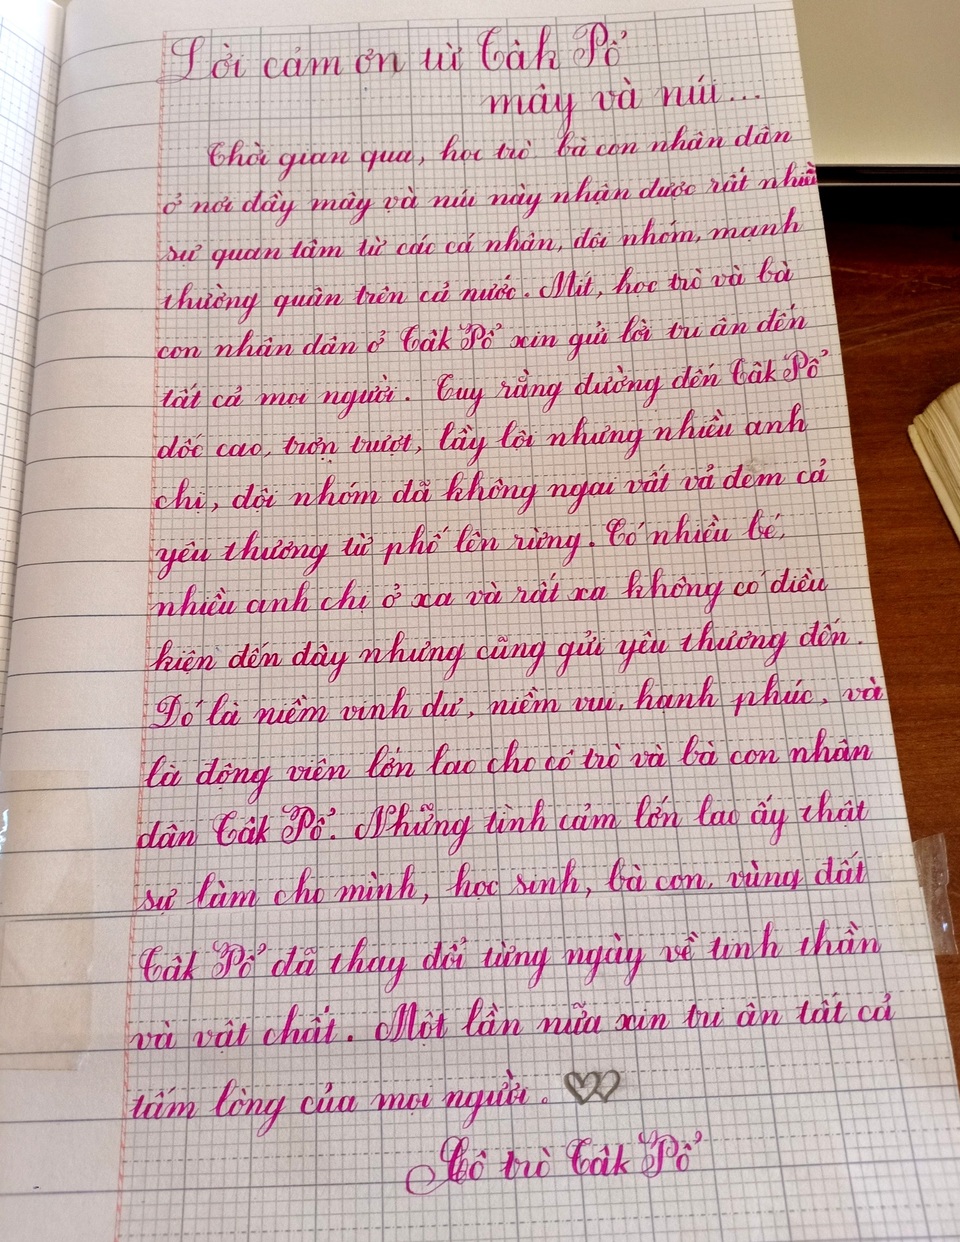 Lời cảm ơn từ Tăk Pổ
mây và núi...
Thời gian qua, học trò bà con nhân dân
ở nơi đầy mây và núi này nhận được rất nhiều
sự quan tâm từ các cá nhân, đội nhóm, mạnh
thường quân trên cả nước. Mít, học trò và bà
con nhân dân ở Tăk Pổ xin gửi lời tri ân đến
tất cả mọi người. Tuy rằng đường đến Tăk Pổ
dốc cao, trơn trượt, lầy lội nhưng nhiều anh
chị, đội nhóm đã không ngại vất vả đem cả
yêu thương từ phố lên rừng. Có nhiều bé,
nhiều anh chị ở xa và rất xa không có điều
kiện đến đây nhưng cũng gửi yêu thương đến.
Đó là niềm vinh dự, niềm vui, hạnh phúc, và
là động viên lớn lao cho cô trò và bà con nhân
dân Tăk Pổ. Những tình cảm lớn lao ấy thật
sự làm cho mình, học sinh, bà con, vùng đất
Tăk Pổ đã thay đổi từng ngày về tinh thần
và vật chất. Một lần nữa xin tri ân tất cả
tấm lòng của mọi người.
Cô trò Tăk Pổ